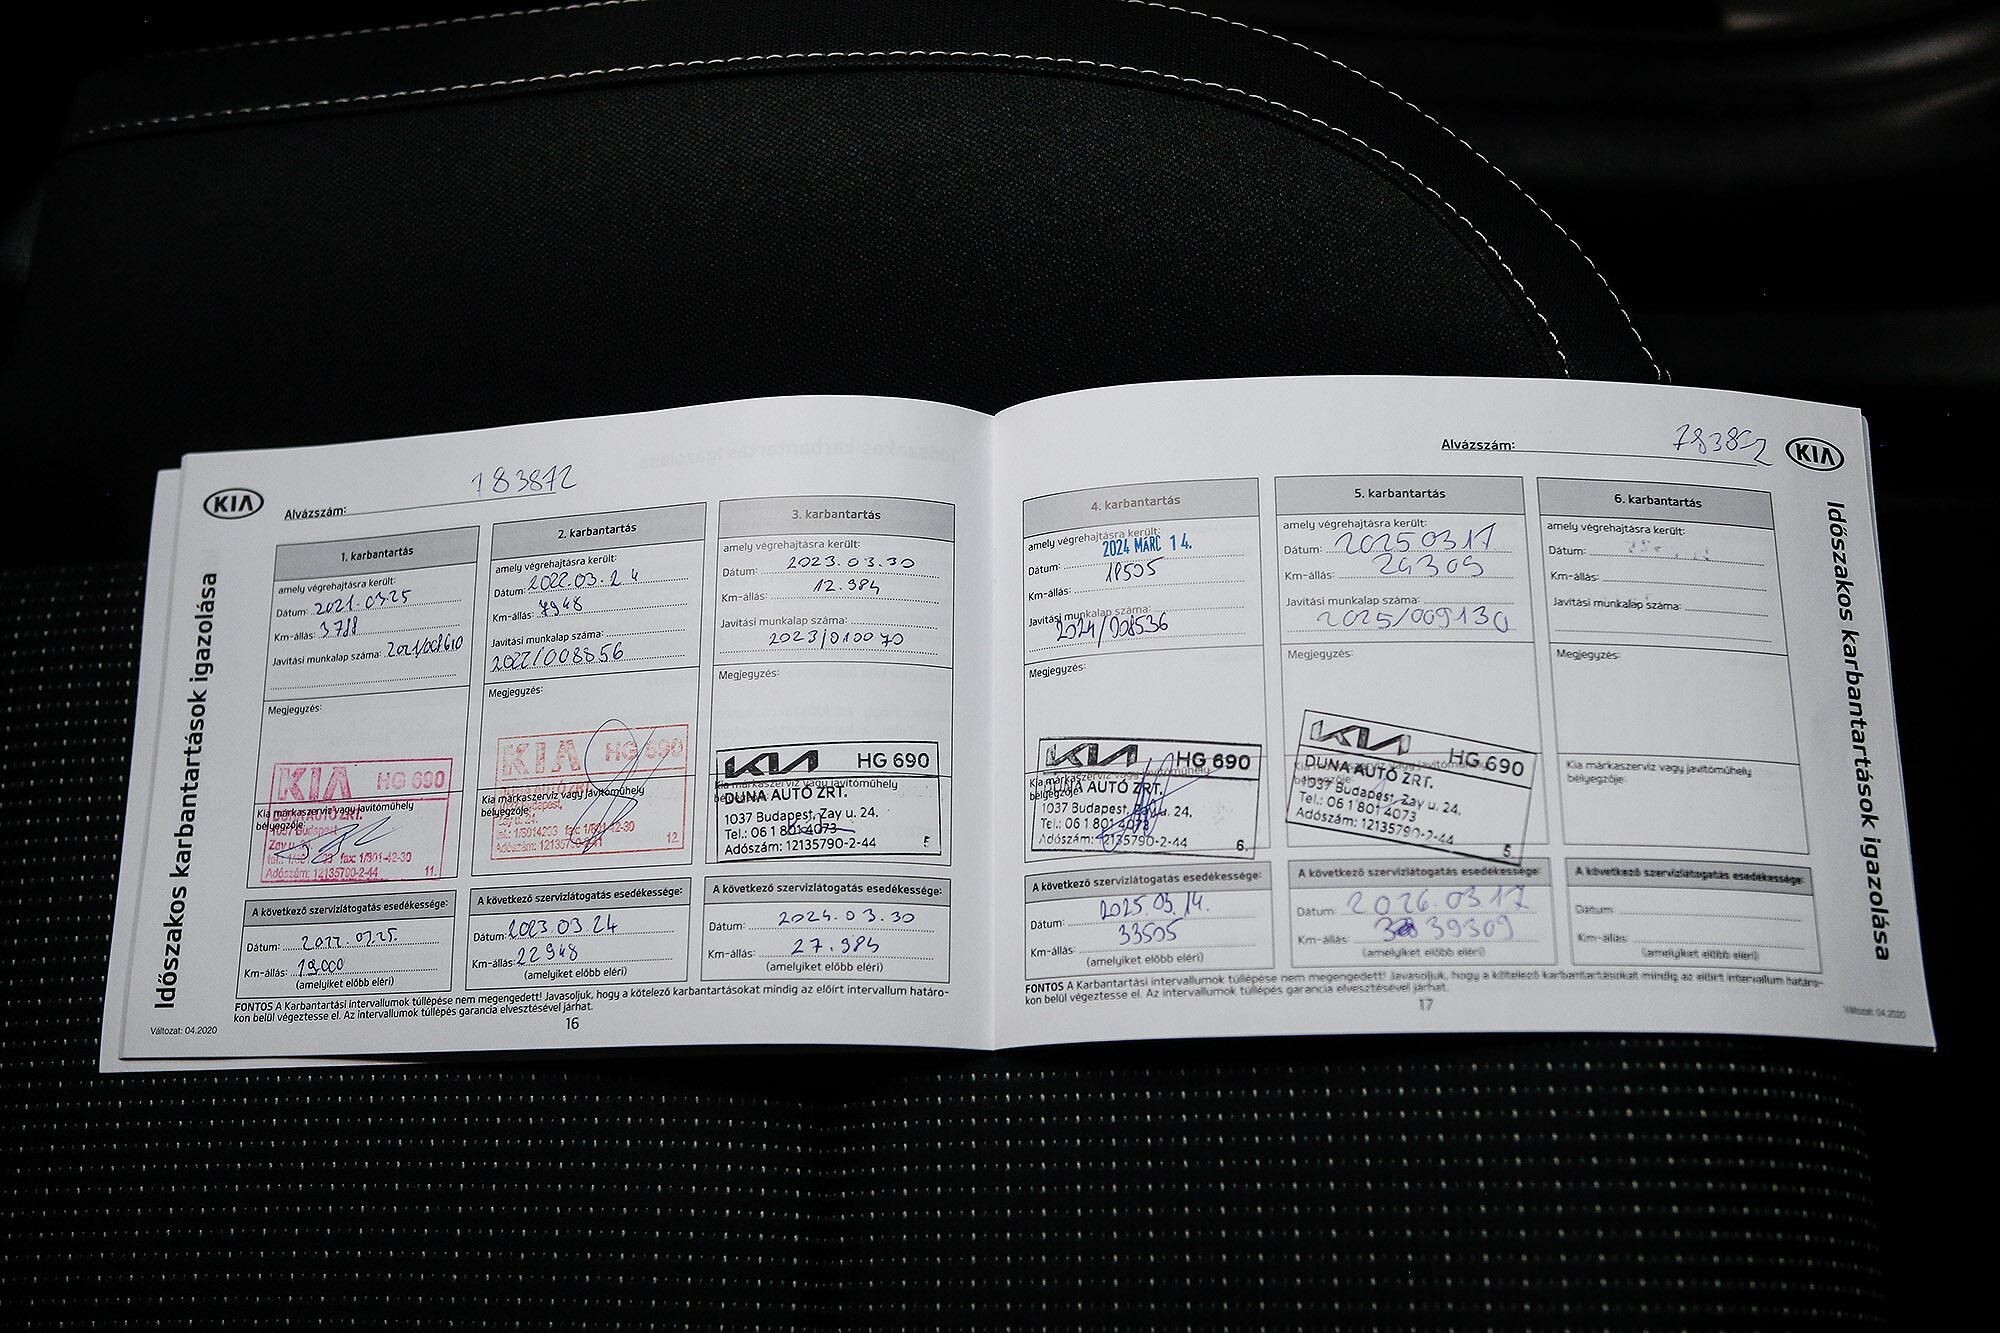 Időszakos karbantartások igazolása
KIA
Alvázszám: 183872
1. karbantartás
amely végrehajtásra került:
Dátum: 2021.03.25
Km-állás: 3788
Javítási munkalap száma: 2021/008610
Megjegyzés:
KIA HG 690
Kia márkaszerviz vagy javítóműhely
bélyegzője:
DUNA AUTÓ ZRT.
1037 Budapest
Zay u.
fax: 1/801-42-30
Adószám: 12135790-2-44 11.
A következő szervizlátogatás esedékessége:
Dátum: 2022.03.25.
Km-állás: 19000
(amelyiket előbb eléri)
2. karbantartás
amely végrehajtásra került:
Dátum: 2022.03.24
Km-állás: 7948
Javítási munkalap száma:
2022/008856
Megjegyzés:
KIA HG 690
Kia márkaszerviz vagy javítóműhely
bélyegzője:
Budapest,
Zay u. 24.
12.
A következő szervizlátogatás esedékessége:
Dátum: 2023.03.24
Km-állás: 22948
(amelyiket előbb eléri)
3. karbantartás
amely végrehajtásra került:
Dátum: 2023.03.30
Km-állás: 12.984
Javítási munkalap száma:
2023/010070
Megjegyzés:
KIA HG 690
Kia márkaszerviz vagy javítóműhely
DUNA AUTÓ ZRT.
1037 Budapest, Zay u. 24.
Tel.: 06 1 801 4073
Adószám: 12135790-2-44 5
A következő szervizlátogatás esedékessége:
Dátum: 2024.03.30
Km-állás: 27.984
(amelyiket előbb eléri)
FONTOS A Karbantartási intervallumok túllépése nem megengedett! Javasoljuk, hogy a kötelező karbantartásokat mindig az előírt intervallum határo-
kon belül végeztesse el. Az intervallumok túllépés garancia elvesztésével járhat.
Változat: 04.2020
16
Alvázszám: 183872
KIA
Időszakos karbantartások igazolása
4. karbantartás
amely végrehajtásra került:
2024 MÁRC 14.
Dátum:
18505
Km-állás:
Javítási munkalap száma:
2024/008536
Megjegyzés:
KIA HG 690
Kia márkaszerviz vagy javítóműhely
DUNA AUTÓ ZRT.
1037 Budapest, Zay u. 24.
Tel.: 06 1 801 4073
Adószám: 12135790-2-44 6.
A következő szervizlátogatás esedékessége:
Dátum: 2025.03.14.
Km-állás: 33505
(amelyiket előbb eléri)
5. karbantartás
amely végrehajtásra került:
Dátum: 20250317
Km-állás: 24309
Javítási munkalap száma:
2025/009130
Megjegyzés:
KIA HG 690
DUNA AUTÓ ZRT.
1037 Budapest, Zay u. 24.
Tel.: 06 1 801 4073
Adószám: 12135790-2-44 5.
A következő szervizlátogatás esedékessége:
Dátum: 2026.0317
Km-állás: 39309
(amelyiket előbb eléri)
6. karbantartás
amely végrehajtásra került:
Dátum:
Km-állás:
Javítási munkalap száma:
Megjegyzés:
Kia márkaszerviz vagy javítóműhely
bélyegzője:
A következő szervizlátogatás esedékessége:
Dátum:
Km-állás:
(amelyiket előbb eléri)
FONTOS A Karbantartási intervallumok túllépése nem megengedett! Javasoljuk, hogy a kötelező karbantartásokat mindig az előírt intervallum határo-
kon belül végeztesse el. Az intervallumok túllépés garancia elvesztésével járhat.
17
Változat: 04.2020